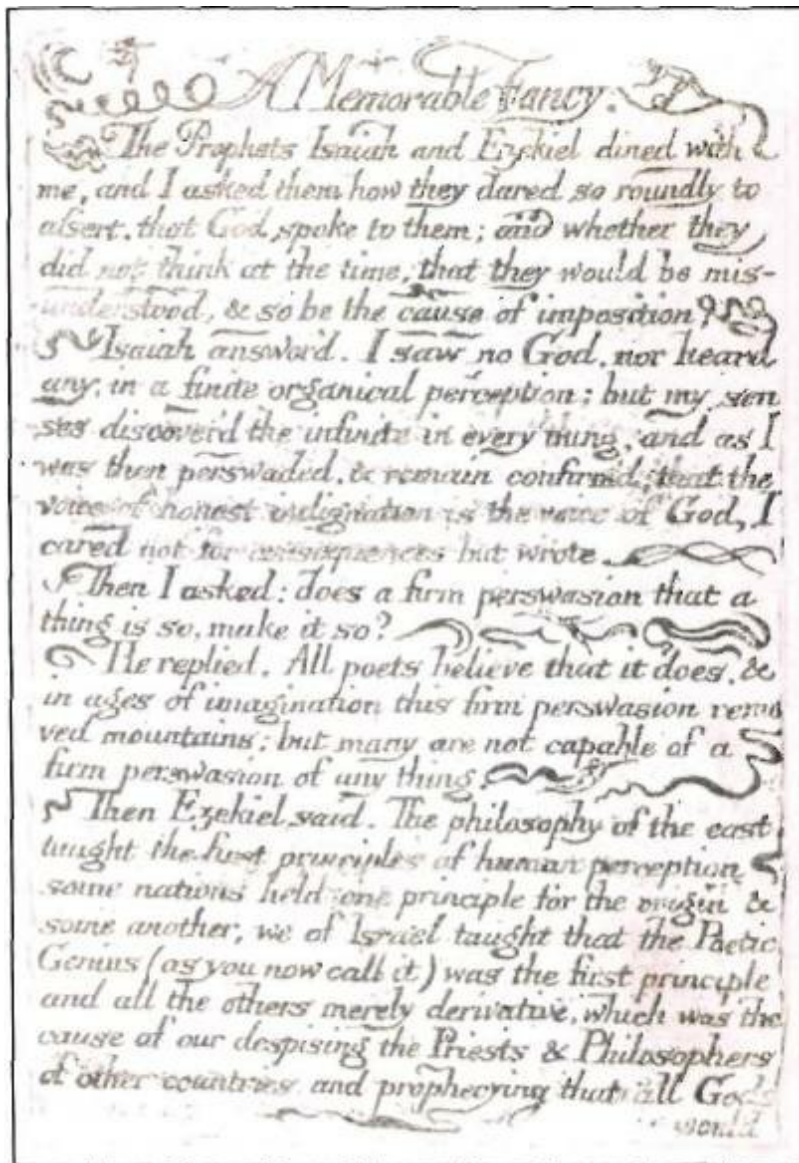 A Memorable Fancy.
The Prophets Isaiah and Ezekiel dined with
me, and I asked them how they dared so roundly to
assert. that God spoke to them; and whether they
did not think at the time, that they would be mis-
understood, & so be the cause of imposition?
Isaiah answerd. I saw no God. nor heard
any, in a finite organical perception; but my sen
-ses discoverd the infinite in every thing, and as I
was then perswaded. & remain confirmd; that the
voice of honest indignation is the voice of God, I
cared not for consequences but wrote.
Then I asked: does a firm perswasion that a
thing is so, make it so?
He replied. All poets believe that it does, &
in ages of imagination this firm perswasion remo
ved mountains; but many are not capable of a
firm perswasion of any thing.
Then Ezekiel said. The philosophy of the east
taught the first principles of human perception
some nations held one principle for the origin &
some another, we of Israel taught that the Poetic
Genius (as you now call it) was the first principle
and all the others merely derivative, which was the
cause of our despising the Priests & Philosophers
of other countries, and prophecying that all Gods
would